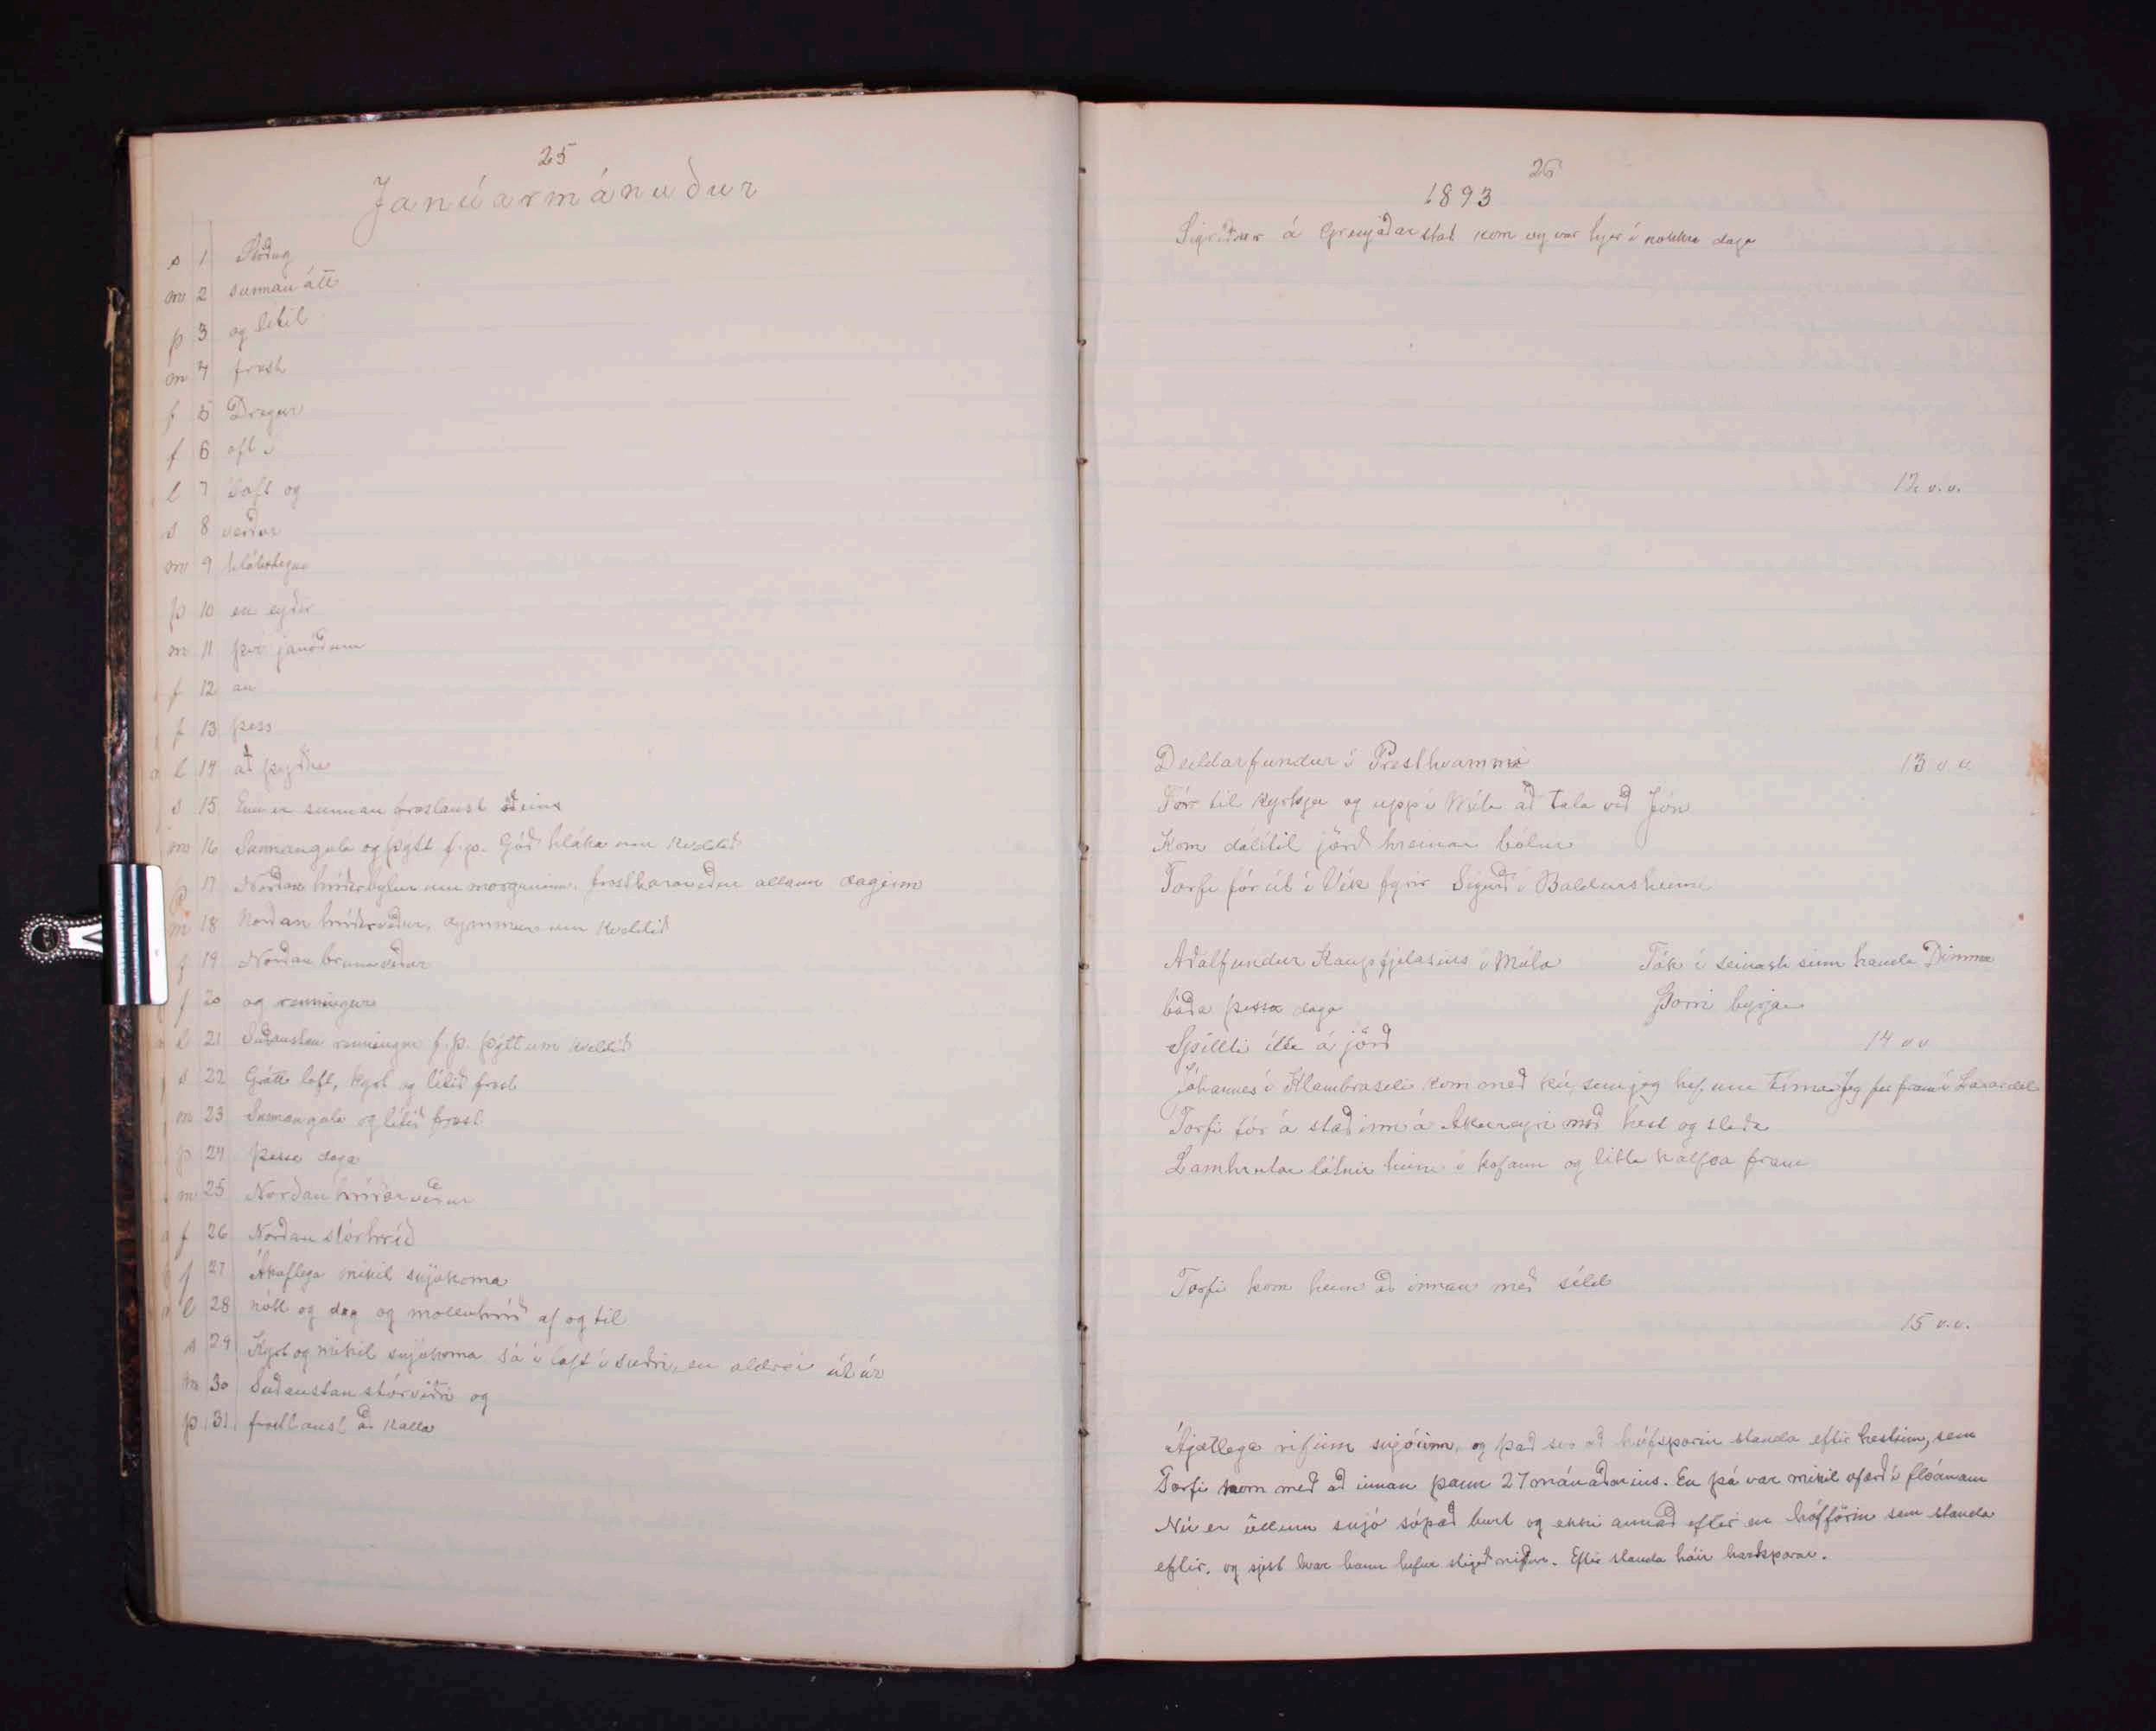 25
Janúarmánuður
s 1 Stöðug
m 2 sunnan átt
þ 3 og lítil
m 4 frost
f 5 Dregur
f 6 oft í
l 7 loft og
s 8 verður
m 9 hlákulegur
þ 10 en eyðir
m 11 því jafnóðum
f 12 án
f 13 þess
l 14 að þýðir
s 15 Enn er sunnan froslaust aðeins
m 16 Sunnangola og þýtt f.p. Góð hláka um kveldið
þ 17 Norðan hríðarbylur um morguninn. frostharaveður allann daginn
m 18 Norðan hríðarveður, dymmur um kveldið
f 19 Norðan brunaveður
f 20 og renningur
l 21 Suðaustan renningur f.p. þýtt um kveldið
s 22 Grátt loft, kyrt og lítið frost
m 23 Sunnangola og lítið frost
þ 24 þessa daga
m 25 Norðan hríðarveður
f 26 Norðan stórhríð
f 27 Ákaflega mikil snjókoma
l 28 nótt og dag og molluhríð af og til
s 29 Kyrt og mikil snjókoma sá í loft í suðri, en aldrei út úr
m 30 Suðaustan stórviðri og
þ 31 frostlaust að kalla
26
1893
Sigríður á Grenjaðarstað kom og var hjer í nokkra daga
12 v.v.
Deildarfundur í Presthvammi 13 v.v.
Fór til kyrkju og upp í Múla að tala við Jón
Kom dálítil jörð hreinar bólur
Torfi fór út í Vík fyrir Sigurð í Baldursheimi
Aðalfundur Kaupfjelagsins í Múla Tók í seinasta sinn handa Dimma
báða þessa daga Þorri byrjar
Spillti illa á jörð 14 v v
Jóhannes í Klambraseli kom með kú, sem jeg hef um tíma Jeg fer fram í Laxárdal
Torfi fór á stað inn á Akureyri með hest og sleða
Lambrutar látnir hinn í kofann og litla kálfa fram
Torfi kom heim að innan með síld
15 v.v.
Ágætlega rifinn snjóinn, og það svo að hófsporin standa eftir hestinn, sem
Torfi kom með að innan þann 27 mánaðarins. En þá var mikil ófærð í flóanum
Nú er öllum snjó sópað burt og ekki annað eftir en hófförin sem standa
eftir, og sjest hvar hann hefur stigið niður. Eftir standa háir harðsporar.